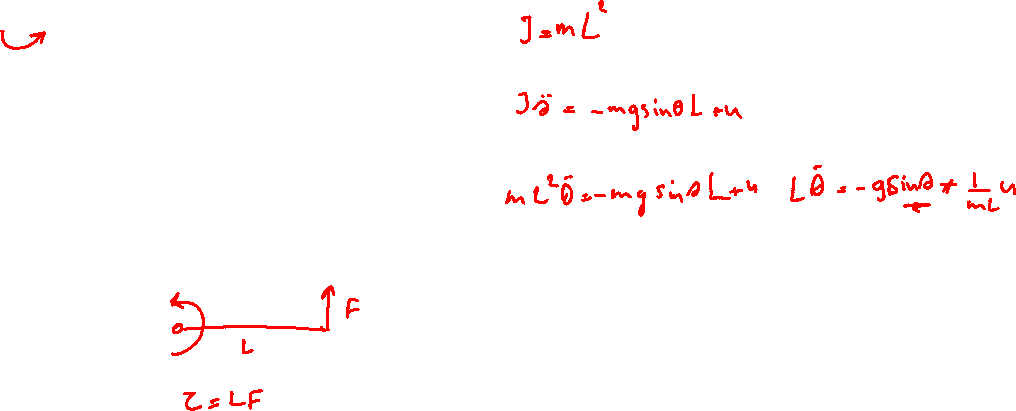 J = mL²
Jθ̈ = -mg sinθ L + u
mL²θ̈ = -mg sinθ L + u   Lθ̈ = -g sinθ + 1/mL u
F
L
τ = LF